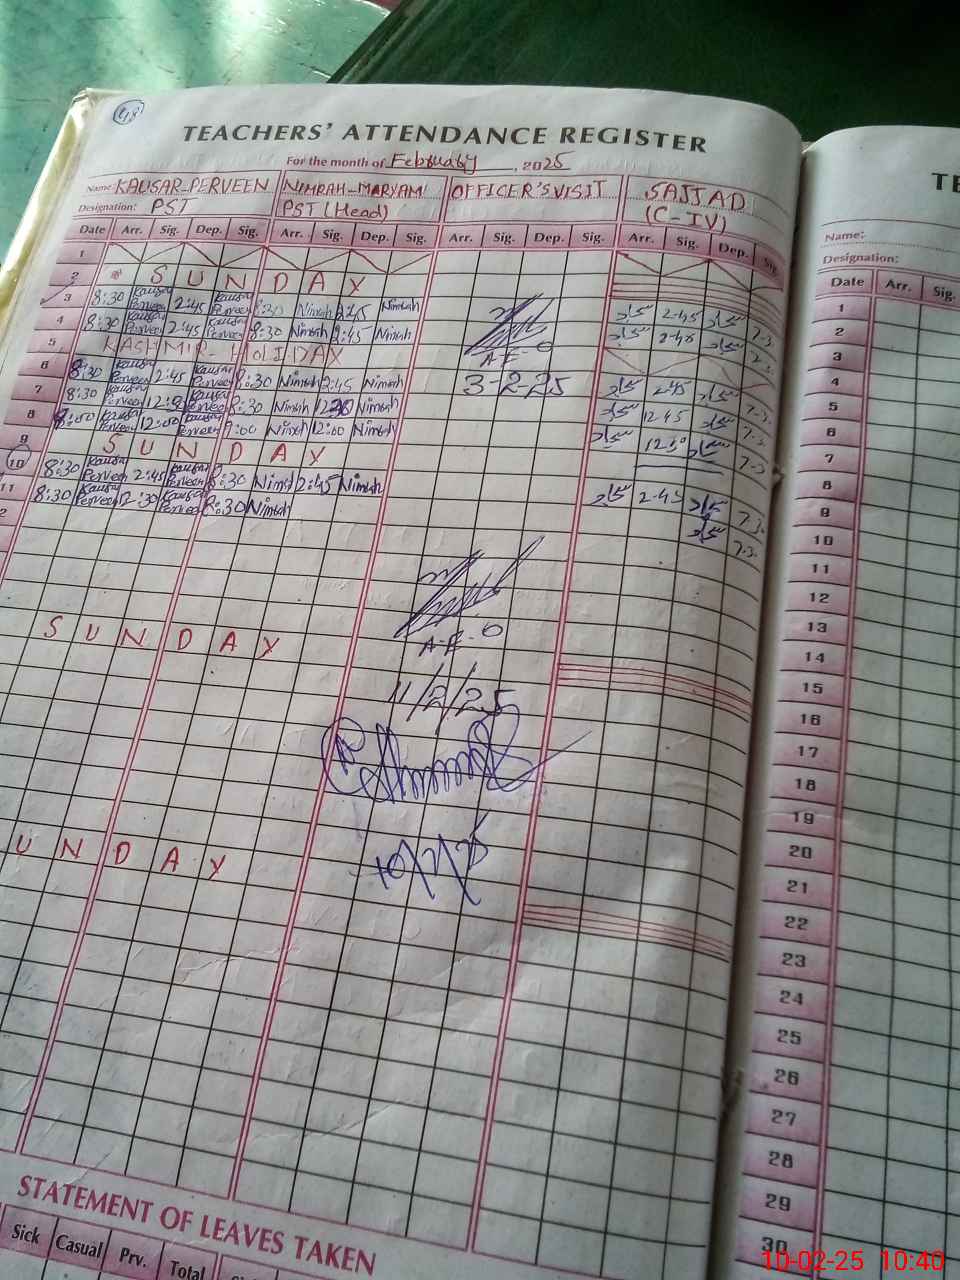 48
TEACHERS' ATTENDANCE REGISTER
For the month of February, 2025
Name: KAUSAR-PERVEEN NIMRAH-MARYAM OFFICER'S VISIT SAJJAD
Designation: PST PST (Head) (C-IV)
Date Arr. Sig. Dep. Sig. Arr. Sig. Dep. Sig. Arr. Sig. Dep. Sig. Arr. Sig. Dep. Sig.
1
2 SUNDAY
3 8:30 Kausar Perveen 2:45 Kausar Perveen 8:30 Nimrah 2:45 Nimrah 2-45
4 8:30 Kausar Perveen 2:45 Kausar Perveen 8:30 Nimrah 2:45 Nimrah 2-45
A-E-O
5 KASHMIR-HOLIDAY
3-2-25
6 8:30 Kausar Perveen 2:45 Kausar Perveen 8:30 Nimrah 2:45 Nimrah 2-45
7 8:30 Kausar Perveen Kausar Perveen 8:30 Nimrah 1230 Nimrah 12 45
8 Kausar Perveen 12:00 Kausar Perveen 9:00 Nimrah 12:00 Nimrah
9 SUNDAY
10 8:30 Kausar Perveen 2:45 Kausar Perveen 8:30 Nimrah 2:45 Nimrah 2-45
11 8:30 Kausar Perveen 2:30 Kausar Perveen 8:30 Nimrah
2
A-E-O
SUNDAY
11/2/25
10/2/25
UNDAY
STATEMENT OF LEAVES TAKEN
Sick Casual Prv. Total
TE
Name:
Designation:
Date Arr. Sig.
1
2
3
4
5
6
7
8
9
10
11
12
13
14
15
16
17
18
19
20
21
22
23
24
25
26
27
28
29
30
10-02-25 10:40